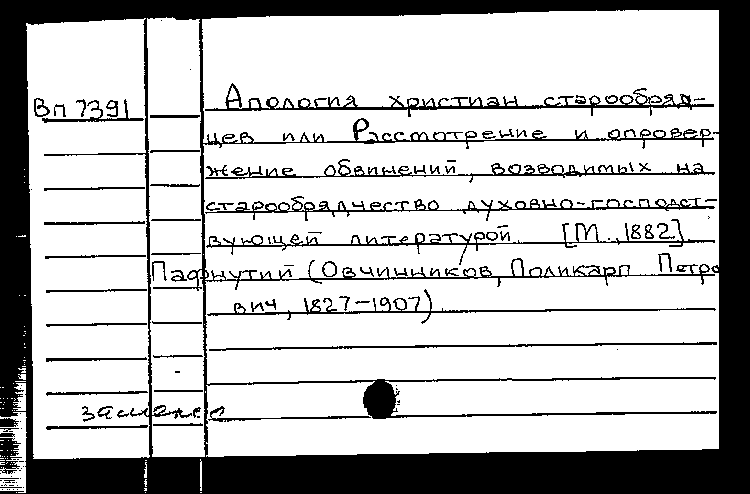 Вп 7391
Апология христиан старообряд-
цев или Рассмотрение и опровер-
жение обвинений, возводимых на
старообрядчество духовно-господст-
вующей литературой [М., 1882]
Пафнутий (Овчинников, Поликарп Петро
вич, 1827-1907)